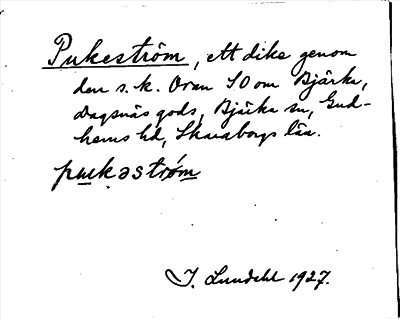 Pukeström, ett dike genom
den s.k. Oran SO om Bjärka,
Dagsnäs gods, Bjärka sn, Gud-
hems hd, Skaraborgs län.
pukəström
J. Lundahl 1927.